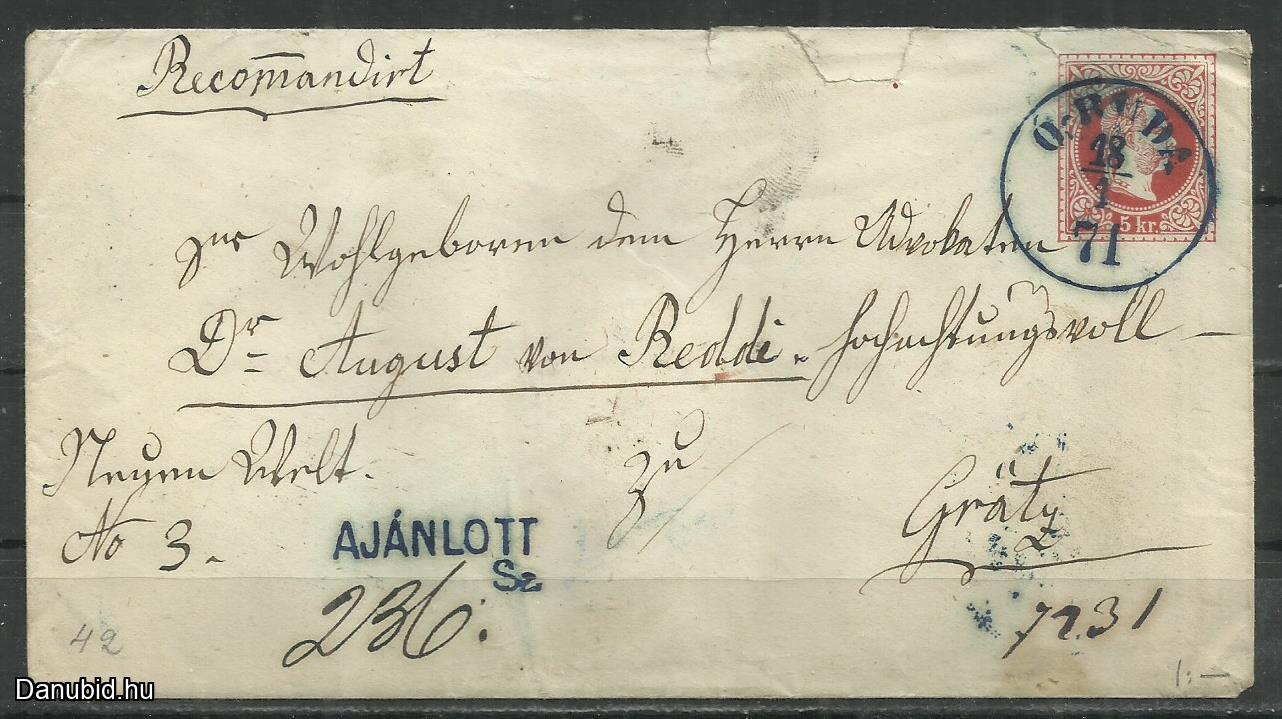 Recom̅andirt
Ó-BUDA
18
1
71
5 kr.
Wohlgeboren dem Herrn Advokaten
Dr August von Reddi hochachtungsvoll –
Neuen Welt.
No 3.
zu
Grätz
AJÁNLOTT
Sz
236.
7231
42
1:–
Danubid.hu